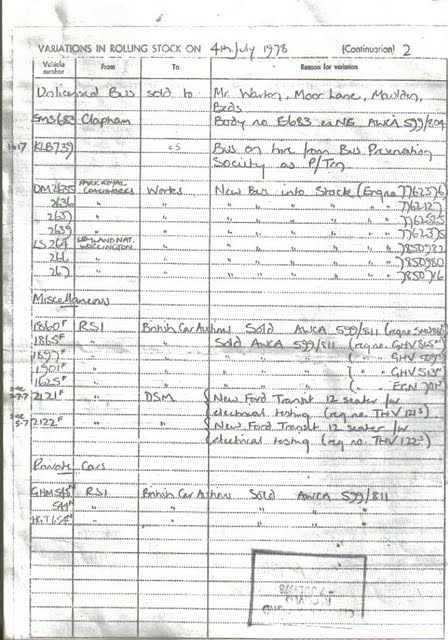 VARIATIONS IN ROLLING STOCK ON 4th July 1978 (Continuation) 2
Vehicle number From To Reason for variation
Unlicensed Bus sold to Mr. Warton, Moor Lane, Maulden,
Beds
SMS683 Clapham Body no E683 AWCA 599/804
KLB739 Bus on hire from Bus Preservation
Society as P/Trn
DM2635 PARK ROYAL COACHWORKS Works New Bus into Stock (Eng no 7762376)
2636 " " " " " "
2637 " " " " " "
2639 " " " " " "
LS264 LEYLAND NAT. WORKINGTON " " " " "
266 " " " " " " 7850980
267 " " " " " "
Miscellaneous
1860F RS1 British Car Auctions Sold AWCA 599/811
1865F " Sold AWCA 599/811 (reg no. GHV
1897F " " " " ( " " GHV
1901F " " " " ( " " GHV
1625F " " " " ( " " EGN
2121F " DSM New Ford Transit 12 seater for
electrical testing (reg no. THV 121S)
2122F " New Ford Transit 12 seater for
electrical testing (reg no. THV 122S)
Private Cars
GHM RS1 British Car Auctions Sold AWCA 599/811
" " " "
" " "